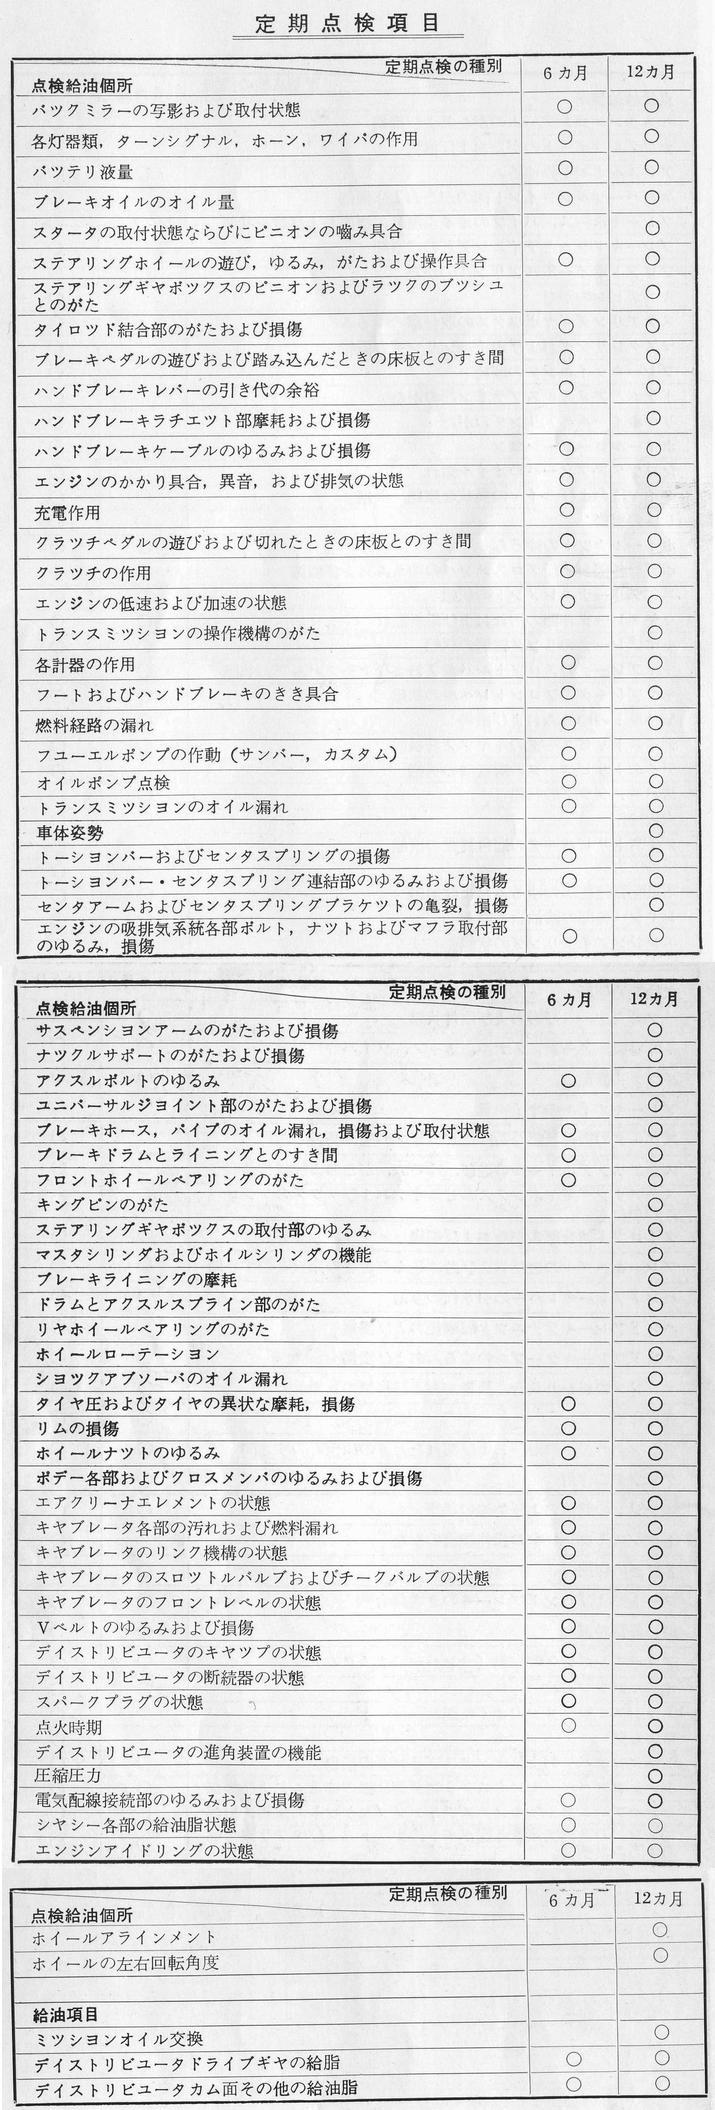 定期点検項目
定期点検の種別 6カ月 12カ月
点検給油個所
バツクミラーの写影および取付状態 ○ ○
各灯器類，ターンシグナル，ホーン，ワイパの作用 ○ ○
バツテリ液量 ○ ○
ブレーキオイルのオイル量 ○ ○
スタータの取付状態ならびにピニオンの噛み具合 ○
ステアリングホイールの遊び，ゆるみ，がたおよび操作具合 ○ ○
ステアリングギヤボツクスのピニオンおよびラツクのブツシユ
とのがた ○
タイロツド結合部のがたおよび損傷 ○ ○
ブレーキペダルの遊びおよび踏み込んだときの床板とのすき間 ○ ○
ハンドブレーキレバーの引き代の余裕 ○ ○
ハンドブレーキラチエツト部摩耗および損傷 ○
ハンドブレーキケーブルのゆるみおよび損傷 ○ ○
エンジンのかかり具合，異音，および排気の状態 ○ ○
充電作用 ○ ○
クラツチペダルの遊びおよび切れたときの床板とのすき間 ○ ○
クラツチの作用 ○ ○
エンジンの低速および加速の状態 ○ ○
トランスミツシヨンの操作機構のがた ○
各計器の作用 ○ ○
フートおよびハンドブレーキのきき具合 ○ ○
燃料経路の漏れ ○ ○
フユーエルポンプの作動（サンバー，カスタム） ○ ○
オイルポンプ点検 ○ ○
トランスミツシヨンのオイル漏れ ○ ○
車体姿勢 ○
トーシヨンバーおよびセンタスプリングの損傷 ○ ○
トーシヨンバー・センタスプリング連結部のゆるみおよび損傷 ○ ○
センタアームおよびセンタスプリングブラケツトの亀裂，損傷 ○
エンジンの吸排気系統各部ボルト，ナツトおよびマフラ取付部
のゆるみ，損傷 ○ ○
定期点検の種別 6カ月 12カ月
点検給油個所
サスペンシヨンアームのがたおよび損傷 ○
ナツクルサポートのがたおよび損傷 ○
アクスルボルトのゆるみ ○ ○
ユニバーサルジヨイント部のがたおよび損傷 ○
ブレーキホース，パイプのオイル漏れ，損傷および取付状態 ○ ○
ブレーキドラムとライニングとのすき間 ○ ○
フロントホイールベアリングのがた ○ ○
キングピンのがた ○
ステアリングギヤボツクスの取付部のゆるみ ○
マスタシリンダおよびホイルシリンダの機能 ○
ブレーキライニングの摩耗 ○
ドラムとアクスルスプライン部のがた ○
リヤホイールベアリングのがた ○
ホイールローテーシヨン ○
シヨツクアブソーバのオイル漏れ ○
タイヤ圧およびタイヤの異状な摩耗，損傷 ○ ○
リムの損傷 ○ ○
ホイールナツトのゆるみ ○ ○
ボデー各部およびクロスメンバのゆるみおよび損傷 ○
エアクリーナエレメントの状態 ○ ○
キヤブレータ各部の汚れおよび燃料漏れ ○ ○
キヤブレータのリンク機構の状態 ○ ○
キヤブレータのスロツトルバルブおよびチークバルブの状態 ○ ○
キヤブレータのフロントレベルの状態 ○ ○
Vベルトのゆるみおよび損傷 ○ ○
デイストリビユータのキヤツプの状態 ○ ○
デイストリビユータの断続器の状態 ○ ○
スパークプラグの状態 ○ ○
点火時期 ○ ○
デイストリビユータの進角装置の機能 ○
圧縮圧力 ○
電気配線接続部のゆるみおよび損傷 ○ ○
シヤシー各部の給油脂状態 ○ ○
エンジンアイドリングの状態 ○ ○
定期点検の種別 6カ月 12カ月
点検給油個所
ホイールアラインメント ○
ホイールの左右回転角度 ○
給油項目
ミツシヨンオイル交換 ○
デイストリビユータドライブギヤの給脂 ○ ○
デイストリビユータカム面その他の給油脂 ○ ○